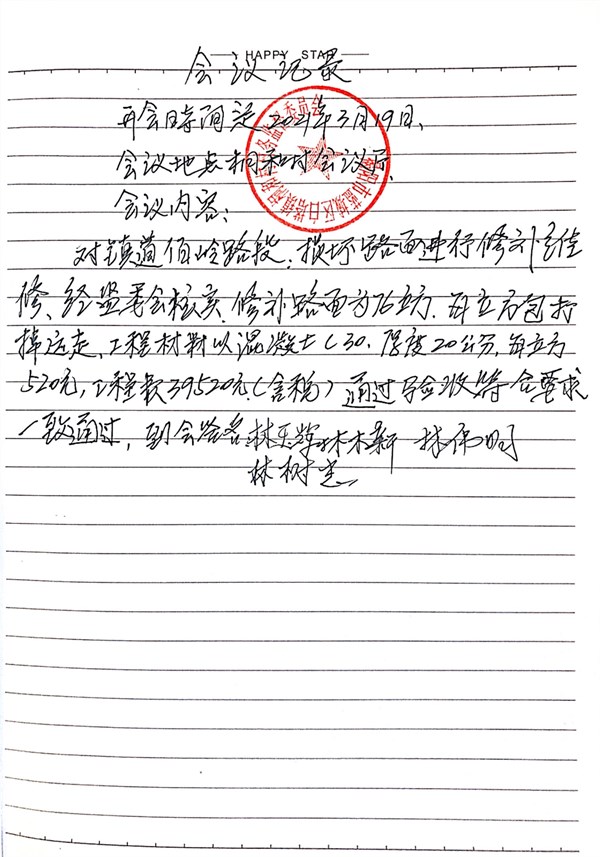 HAPPY STAR
会议记录
开会时间是2021年3月19日、
会议地点桐和村会议厅、
会议内容：
对镇道伯岭路段、损坏路面进行修补
修、经监委会核实、修补路面为76立方、每立方包打
掉运走、工程材料以混凝土C30.厚度20公分,每立方
520元,工程款39520元(含税)通过验收符合要求
一致通过,到会签名 林木新 林伟明
林树忠